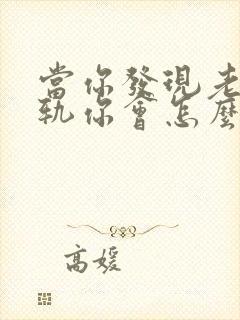 當你發現老
軌你會怎麼
高媛